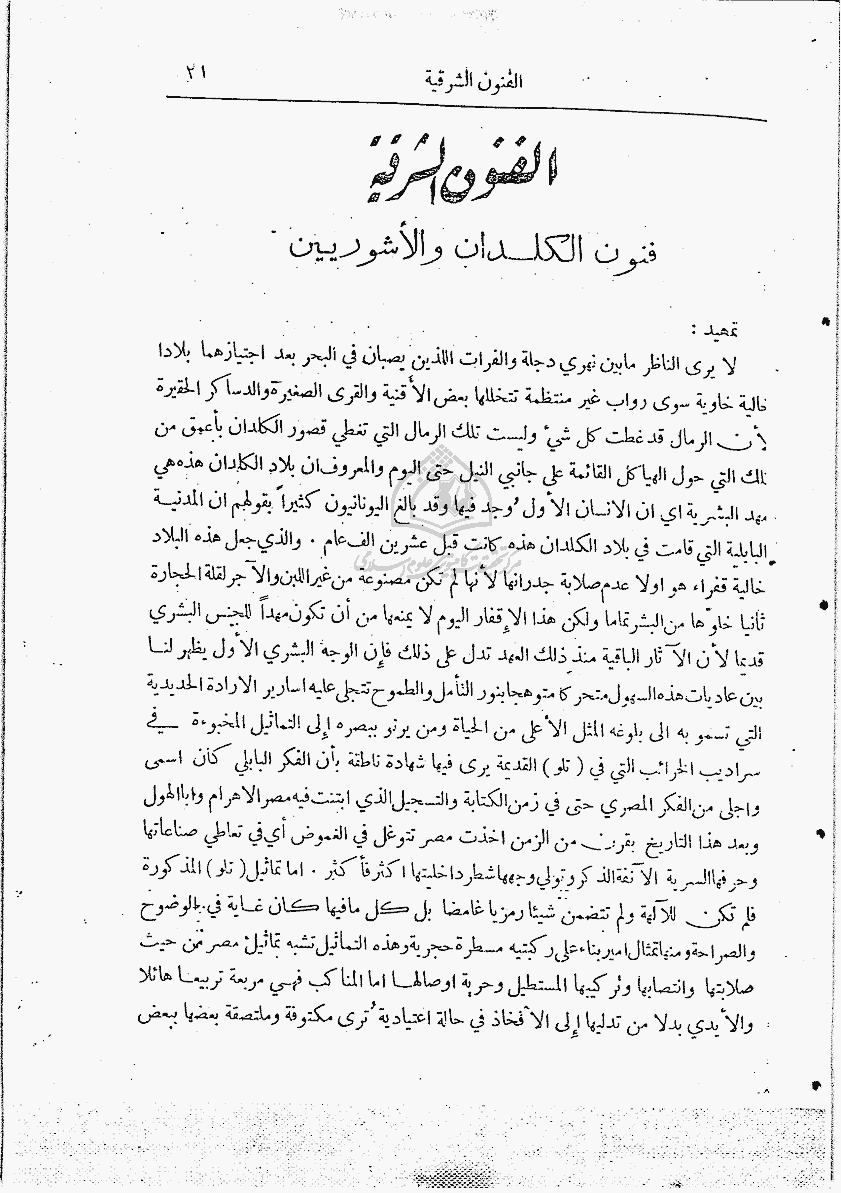 الفنون الشرقية
٢١
الفنون الشرقية
فنون الكلدان والأشوريين
تمهيد :
لا يرى الناظر مابين نهري دجلة والفرات اللذين يصبان في البحر بعد اجتيازهما بلادا
خالية خاوية سوى رواب غير منتظمة تتخللها بعض الأقنية والقرى الصغيرة والدساكر الحقيرة
لأن الرمال قد غطت كل شيء وليست تلك الرمال التي تغطي قصور الكلدان بأعمق من
تلك التي حول الهياكل القائمة على جانبي النيل حتى اليوم والمعروف ان بلاد الكلدان هذه هي
مهد البشرية اي ان الانسان الأول وُجد فيها وقد بالغ اليونانيون كثيراً بقولهم ان المدنية
البابلية التي قامت في بلاد الكلدان هذه كانت قبل عشرين الف عام . والذي جعل هذه البلاد
خالية قفراء هو اولا عدم صلابة جدرانها لأنها لم تكن مصنوعة من غير اللبن والآجر لقلة الحجارة
ثانيا خلوّها من البشر تماما ولكن هذا الإقفار اليوم لا يمنعها من أن تكون مهداً للجنس البشري
قديما لأن الآثار الباقية منذ ذلك العهد تدل على ذلك فإن الوجه البشري الأول يظهر لنا
بين عاديات هذه السهول متحركا متوهجا بنور التأمل والطموح تتجلى عليه اسارير الارادة الحديدية
التي تسمو به الى بلوغه المثل الأعلى من الحياة ومن يرنو ببصره إلى التماثيل المخبوءة في
سراديب الخرائب التي في ( تلو ) القديمة يرى فيها شهادة ناطقة بأن الفكر البابلي كان اسمى
واجلى من الفكر المصري حتى في زمن الكتابة والتسجيل الذي ابتنت فيه مصر الاهرام وابا الهول
وبعد هذا التاريخ بقرن من الزمن اخذت مصر تتوغل في الغموض أي في تعاطي صناعاتها
وحرفها السرية الآنفة الذكر وتولي وجهها شطر داخليتها اكثر فأكثر . اما تماثيل ( تلو ) المذكورة
فلم تكن للآلهة ولم تتضمن شيئا رمزيا غامضا بل كل مافيها كان غاية في الوضوح
والصراحة ومنها تمثال امير بناء على ركبتيه مسطرة حجرية وهذه التماثيل تشبه تماثيل مصر من حيث
صلابتها وانتصابها وتركيبها المستطيل وحرية اوصالها اما المناكب فهي مربعة تربيعا هائلا
والأيدي بدلا من تدليها إلى الأفخاذ في حالة اعتيادية تُرى مكتوفة وملتصقة بعضها ببعض